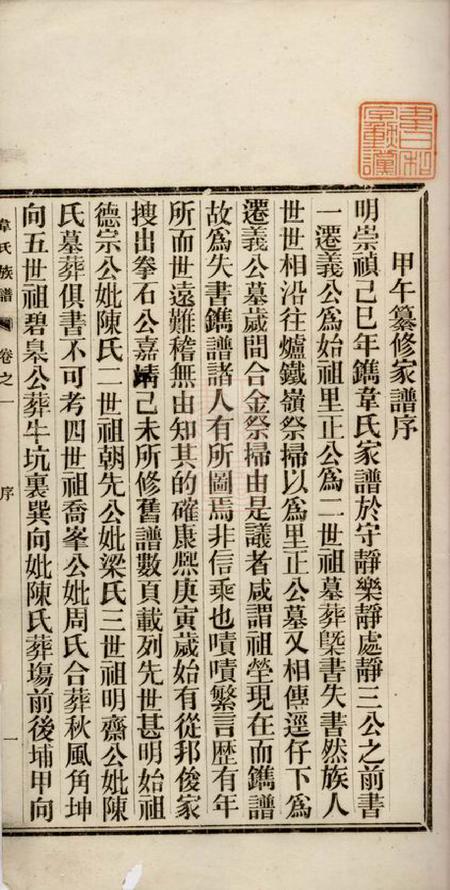 甲午纂修家譜序
明崇禎己巳年鐫韋氏家譜於守靜樂靜處靜三公之前書
一遷義公為始祖里正公為二世祖墓葬槩書失書然族人
世世相沿往爐鐵嶺祭掃以為里正公墓又相傳逕仔下為
遷義公墓歲間合金祭掃由是議者咸謂祖塋現在而鐫譜
故為失書鐫譜諸人有所圖焉非信乘也嘖嘖繁言歷有年
所而世遠難稽無由知其的確康熙庚寅歲始有從邦俊家
搜出拳石公嘉靖己未所修舊譜數頁載列先世甚明始祖
德宗公妣陳氏二世祖朝先公妣梁氏三世祖明齋公妣陳
氏墓葬俱書不可考四世祖喬峯公妣周氏合葬秋風角坤
向五世祖碧臯公葬牛坑裏巽向妣陳氏葬塲前後埔甲向
韋氏族譜
卷之一
序
一